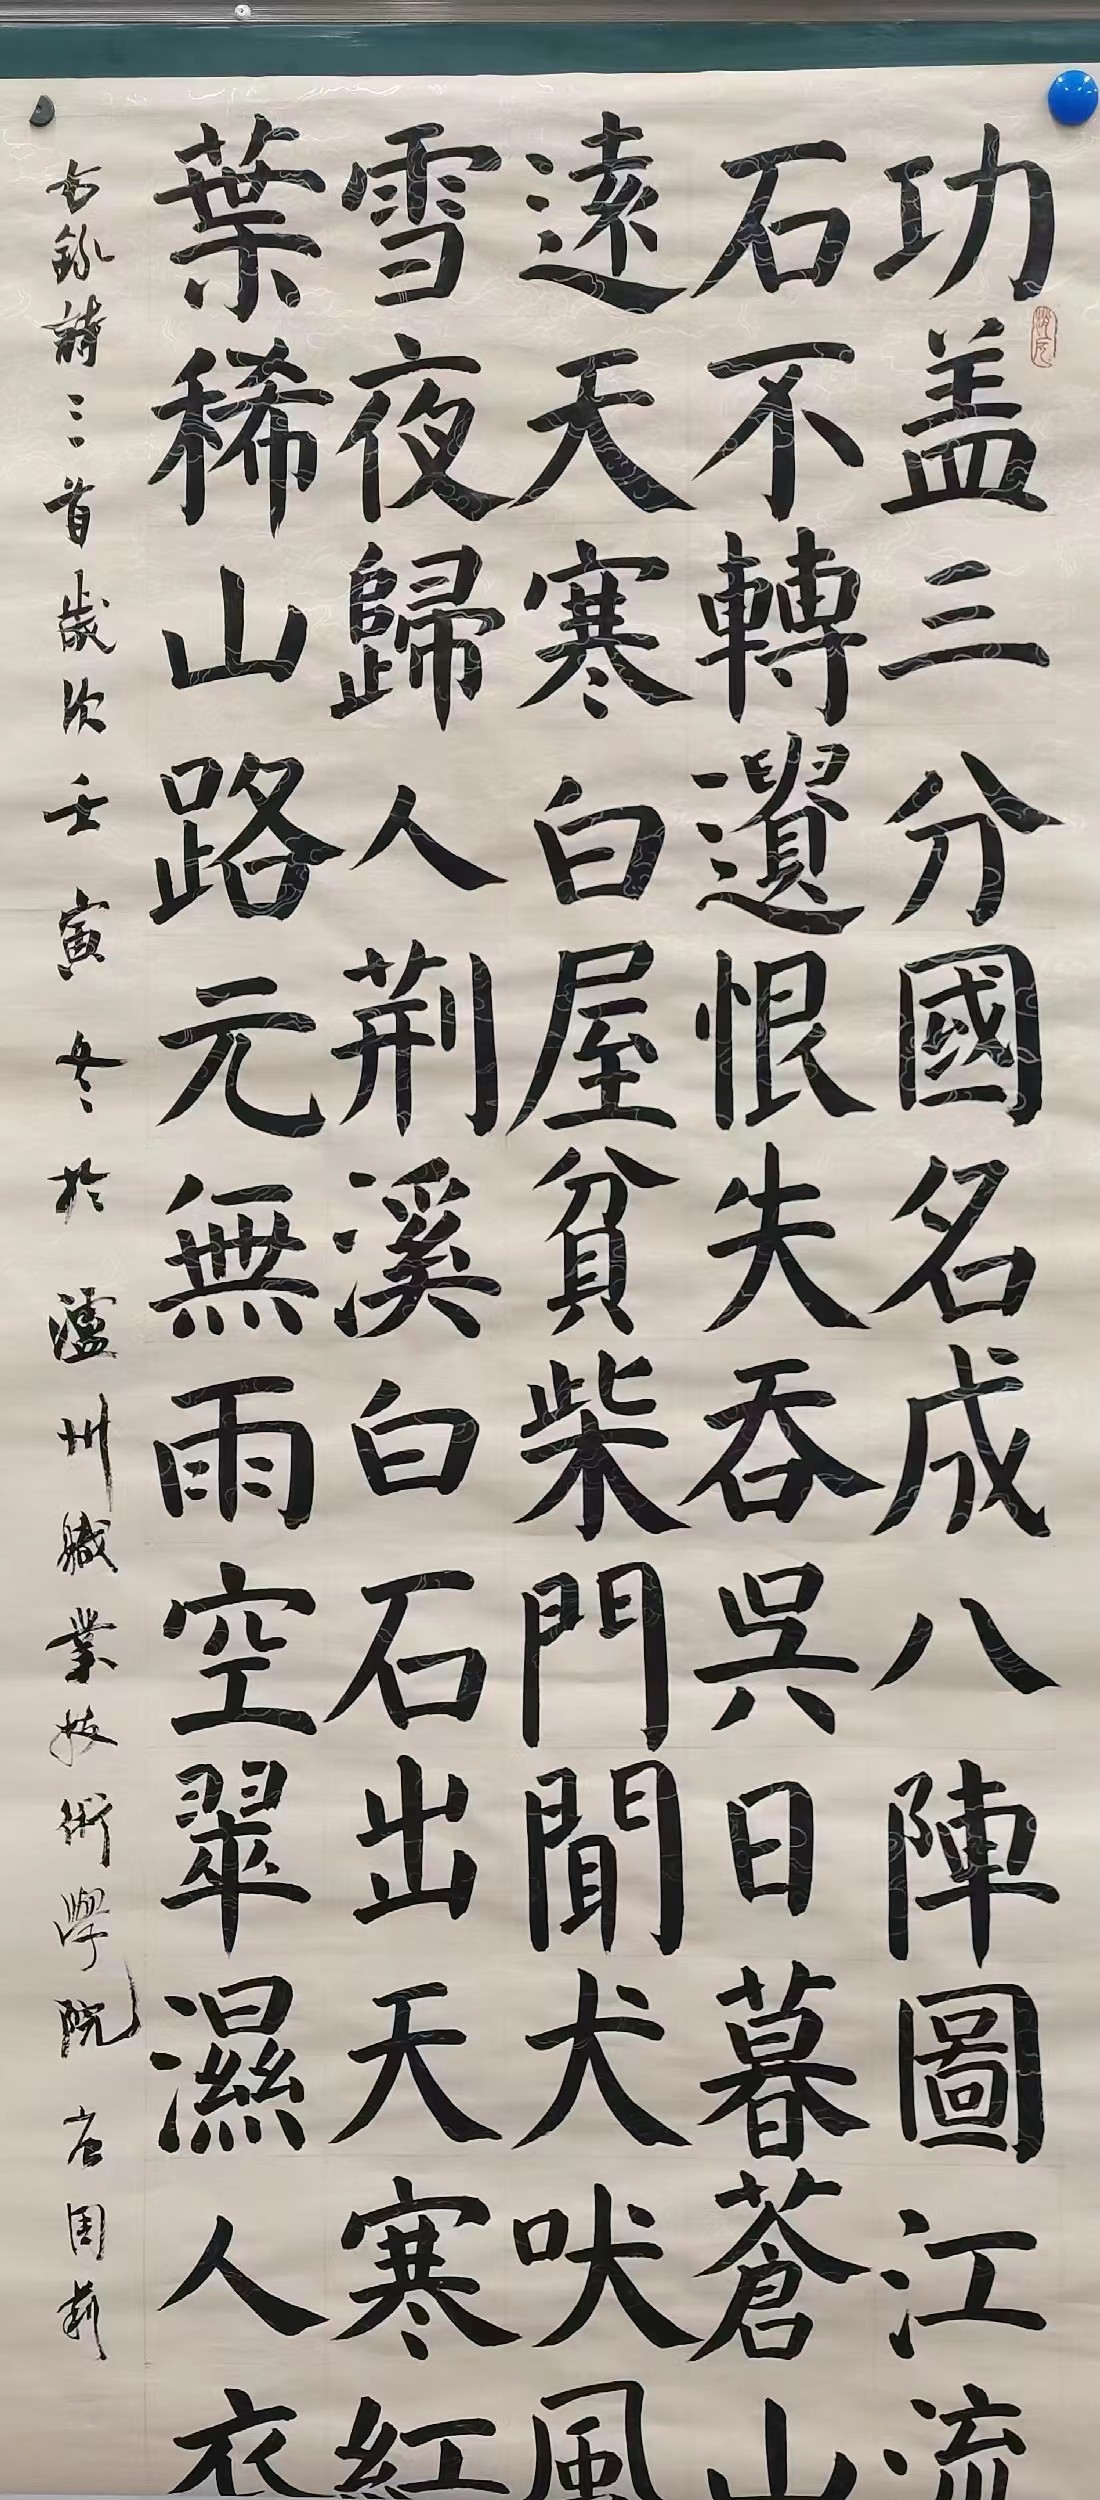 功盖三分國名成八陣圖江流
石不轉遺恨失吞吳日暮蒼山
遠天寒白屋貧柴門聞犬吠風
雪夜歸人荆溪白石出天寒紅
葉稀山路元無雨空翠濕人衣
古錄詩三首歲次壬寅冬於瀘州職業技術學院 周莉